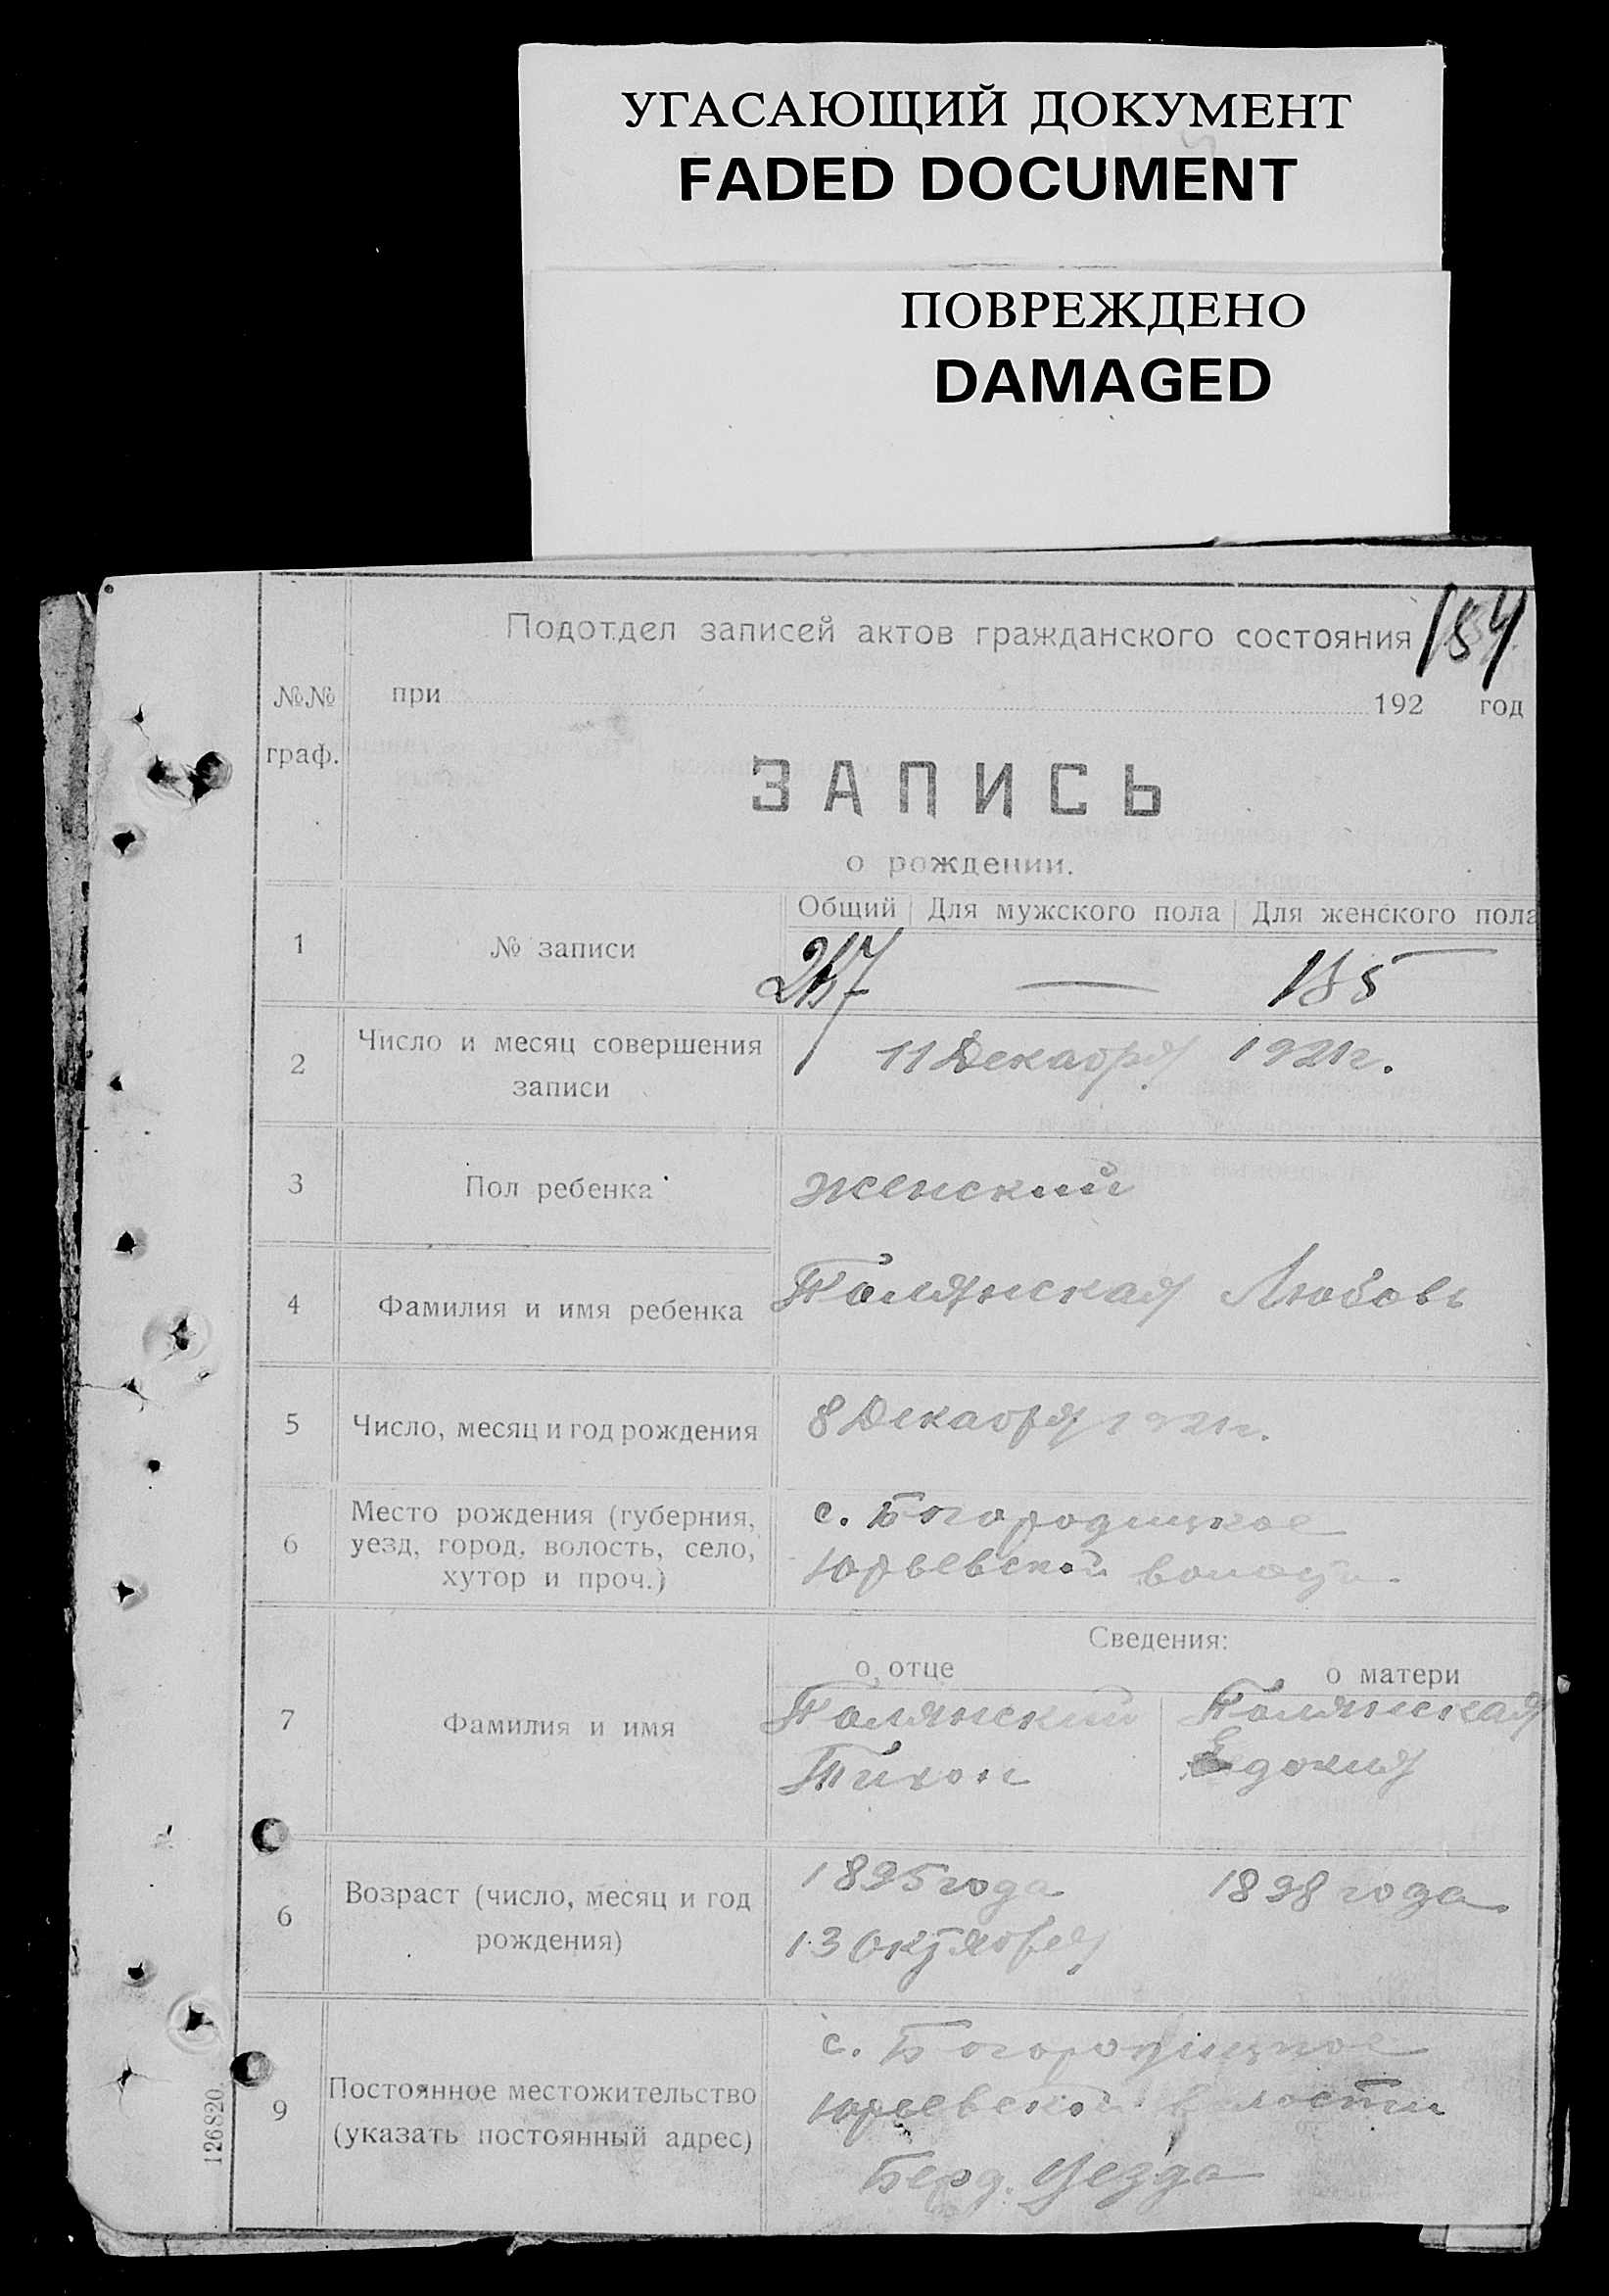 УГАСАЮЩИЙ ДОКУМЕНТ
FADED DOCUMENT
ПОВРЕЖДЕНО
DAMAGED
184
Подотдел записей актов гражданского состояния
№№ граф.
при 192 год
ЗАПИСЬ
о рождении.
Общий Для мужского пола Для женского пола
1 № записи — 185
2 Число и месяц совершения
записи
11 Декабря 1921г.
3 Пол ребенка женский
4 Фамилия и имя ребенка Полянская Любовь
5 Число, месяц и год рождения 8 Декабря 1921г.
6 Место рождения (губерния,
уезд, город, волость, село,
хутор и проч.)
с. Богородицкое
Юрьевской
Сведения:
о отце о матери
7 Фамилия и имя
Полянский Полянская
Тихон Едокия
6 Возраст (число, месяц и год
рождения)
1895 года 1898 года
13 октября
9 Постоянное местожительство
(указать постоянный адрес)
с. Богородицкое
Юрьевской волости
Берд. уезда
126820.